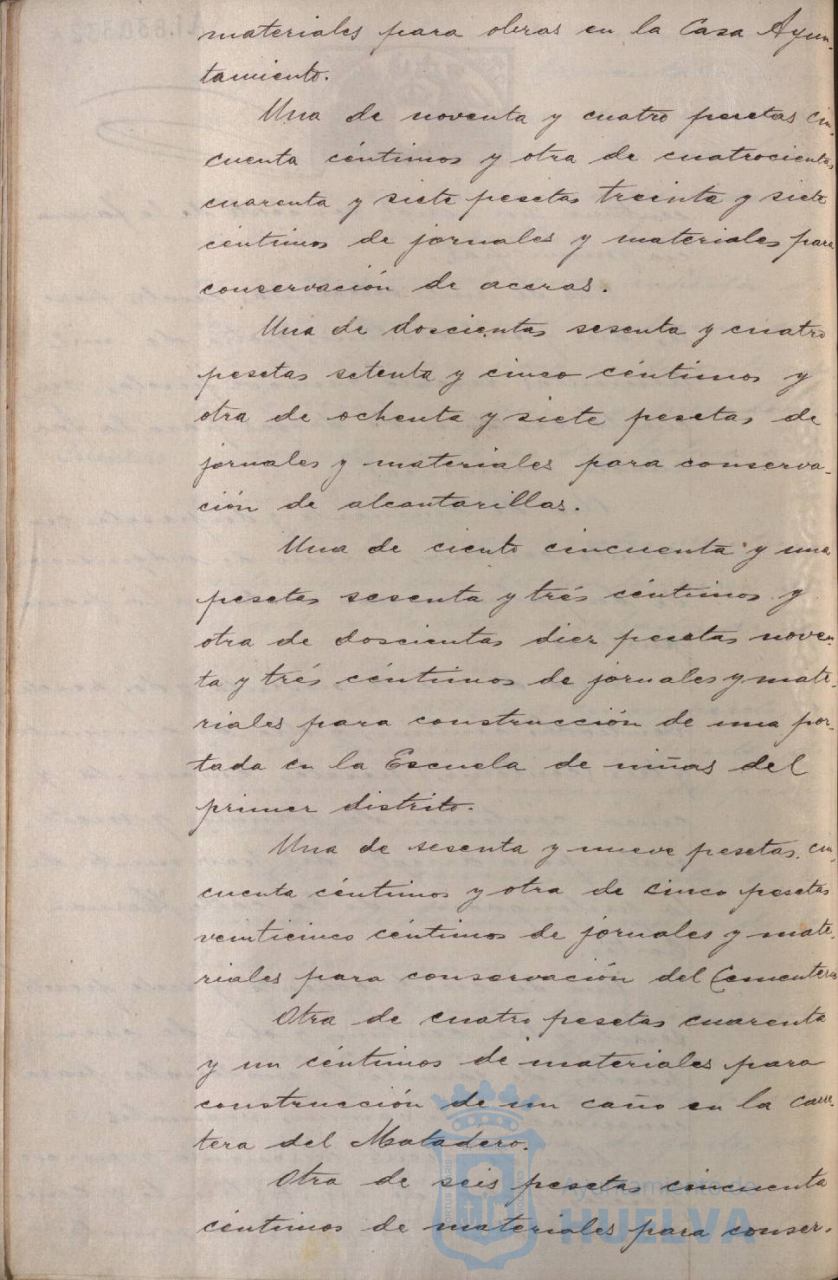 materiales para obras en la Casa Ayun-
tamiento.
Una de noventa y cuatro pesetas cin-
cuenta céntimos y otra de cuatrocientas
cuarenta y siete pesetas treinta y siete
céntimos de jornales y materiales para
conservación de aceras.
Una de doscientas sesenta y cuatro
pesetas setenta y cinco céntimos y
otra de ochenta y siete pesetas de
jornales y materiales para conserva-
ción de alcantarillas.
Una de ciento cincuenta y una
pesetas sesenta y trés céntimos y
otra de doscientas diez pesetas noven-
ta y trés céntimos de jornales y mate-
riales para construcción de una por-
tada en la Escuela de niñas del
primer distrito.
Una de sesenta y nueve pesetas cin-
cuenta céntimos y otra de cinco pesetas
veinticinco céntimos de jornales y mate-
riales para conservación del Cementerio
Otra de cuatro pesetas cuarenta
y un céntimos de materiales para
construcción de un caño en la
tera del Matadero.
Otra de seis pesetas cincuenta
céntimos de materiales para conser-
Ayuntamiento de
HUELVA